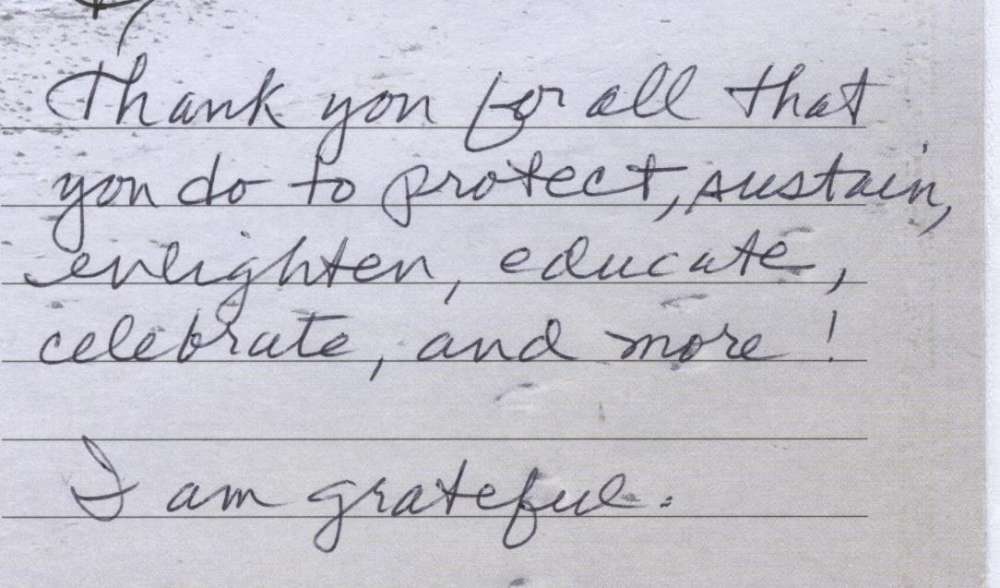 Thank you for all that
you do to protect, sustain,
enlighten, educate,
celebrate, and more!
I am grateful.